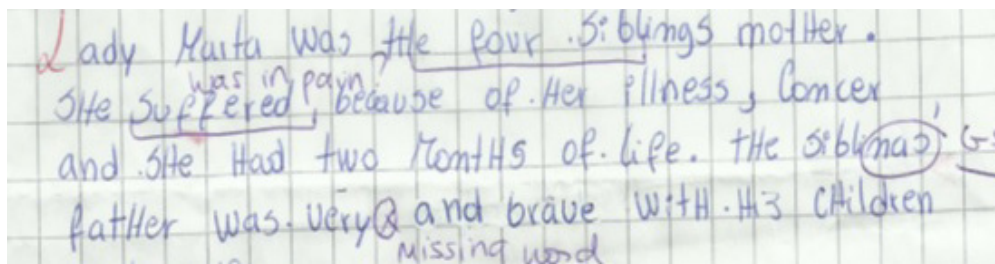 Lady Marta was the four siblings mother.
was in payn
SHe suffered, because of. Her illness, Concer
and. SHe Had two MontHs of. life. tHe siblinas' G:
fatHer was. very and brave witH. His CHildren
Missing word